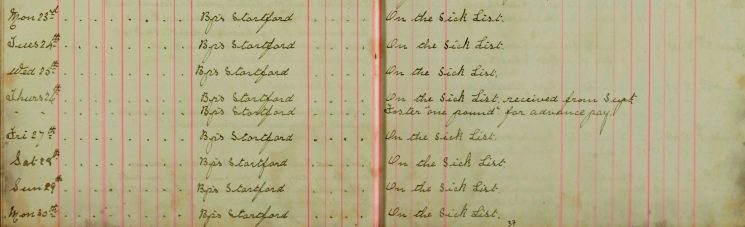 Mon 23rd . . . . . . Bp's Stortford . . . . On the Sick List.
Tues 24th . . . . . . Bp's Stortford . . . . On the Sick List.
Wed 25th . . . . . . Bp's Stortford . . . . On the Sick List.
Thurs 26th . . . . . . Bp's Stortford . . . . On the Sick List, received from Supt
" . . . . . . Bp's Stortford . . . . Foster "one pound" for advance pay.
Fri 27th . . . . . . Bp's Stortford . . . . On the Sick List.
Sat 28th . . . . . . Bp's Stortford . . . . On the Sick List.
Sun 29th . . . . . . Bp's Stortford . . . . On the Sick List.
Mon 30th . . . . . . Bp's Stortford . . . . On the Sick List.
37